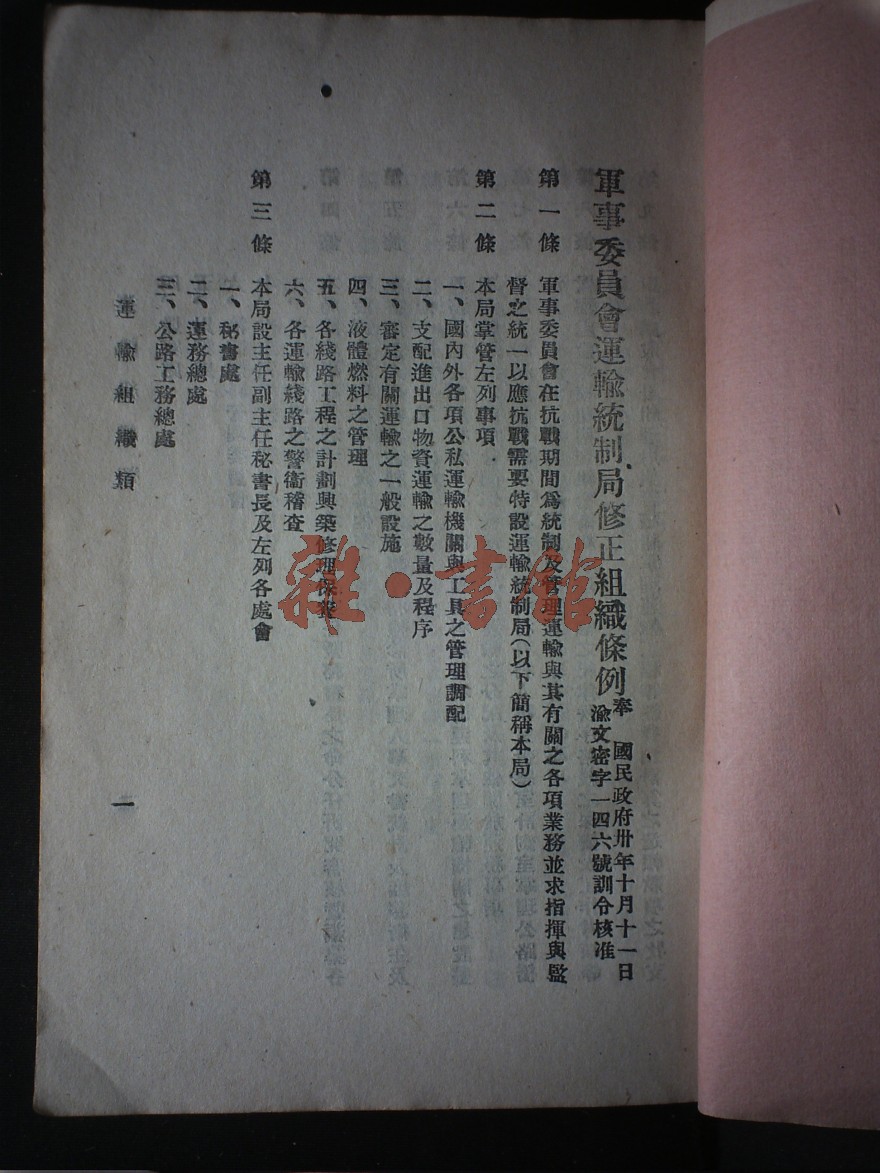 軍事委員會運輸統制局修正組織條例
奉 國民政府卅年十月十一日
渝文密字一四六號訓令核准
第一條 軍事委員會在抗戰期間為統制及管理運輸與其有關之各項業務並求指揮與監
督之統一以應抗戰需要特設運輸統制局(以下簡稱本局)
第二條 本局掌管左列事項
一、國內外各項公私運輸機關與工具之管理調配
二、支配進出口物資運輸之數量及程序
三、審定有關運輸之一般設施
四、液體燃料之管理
五、各綫路工程之計劃興築修理保養
六、各運輸綫路之警衞稽查
第三條 本局設主任副主任秘書長及左列各處會
一、秘書處
二、運務總處
三、公路工務總處
運輸組織類
一
雜·書館